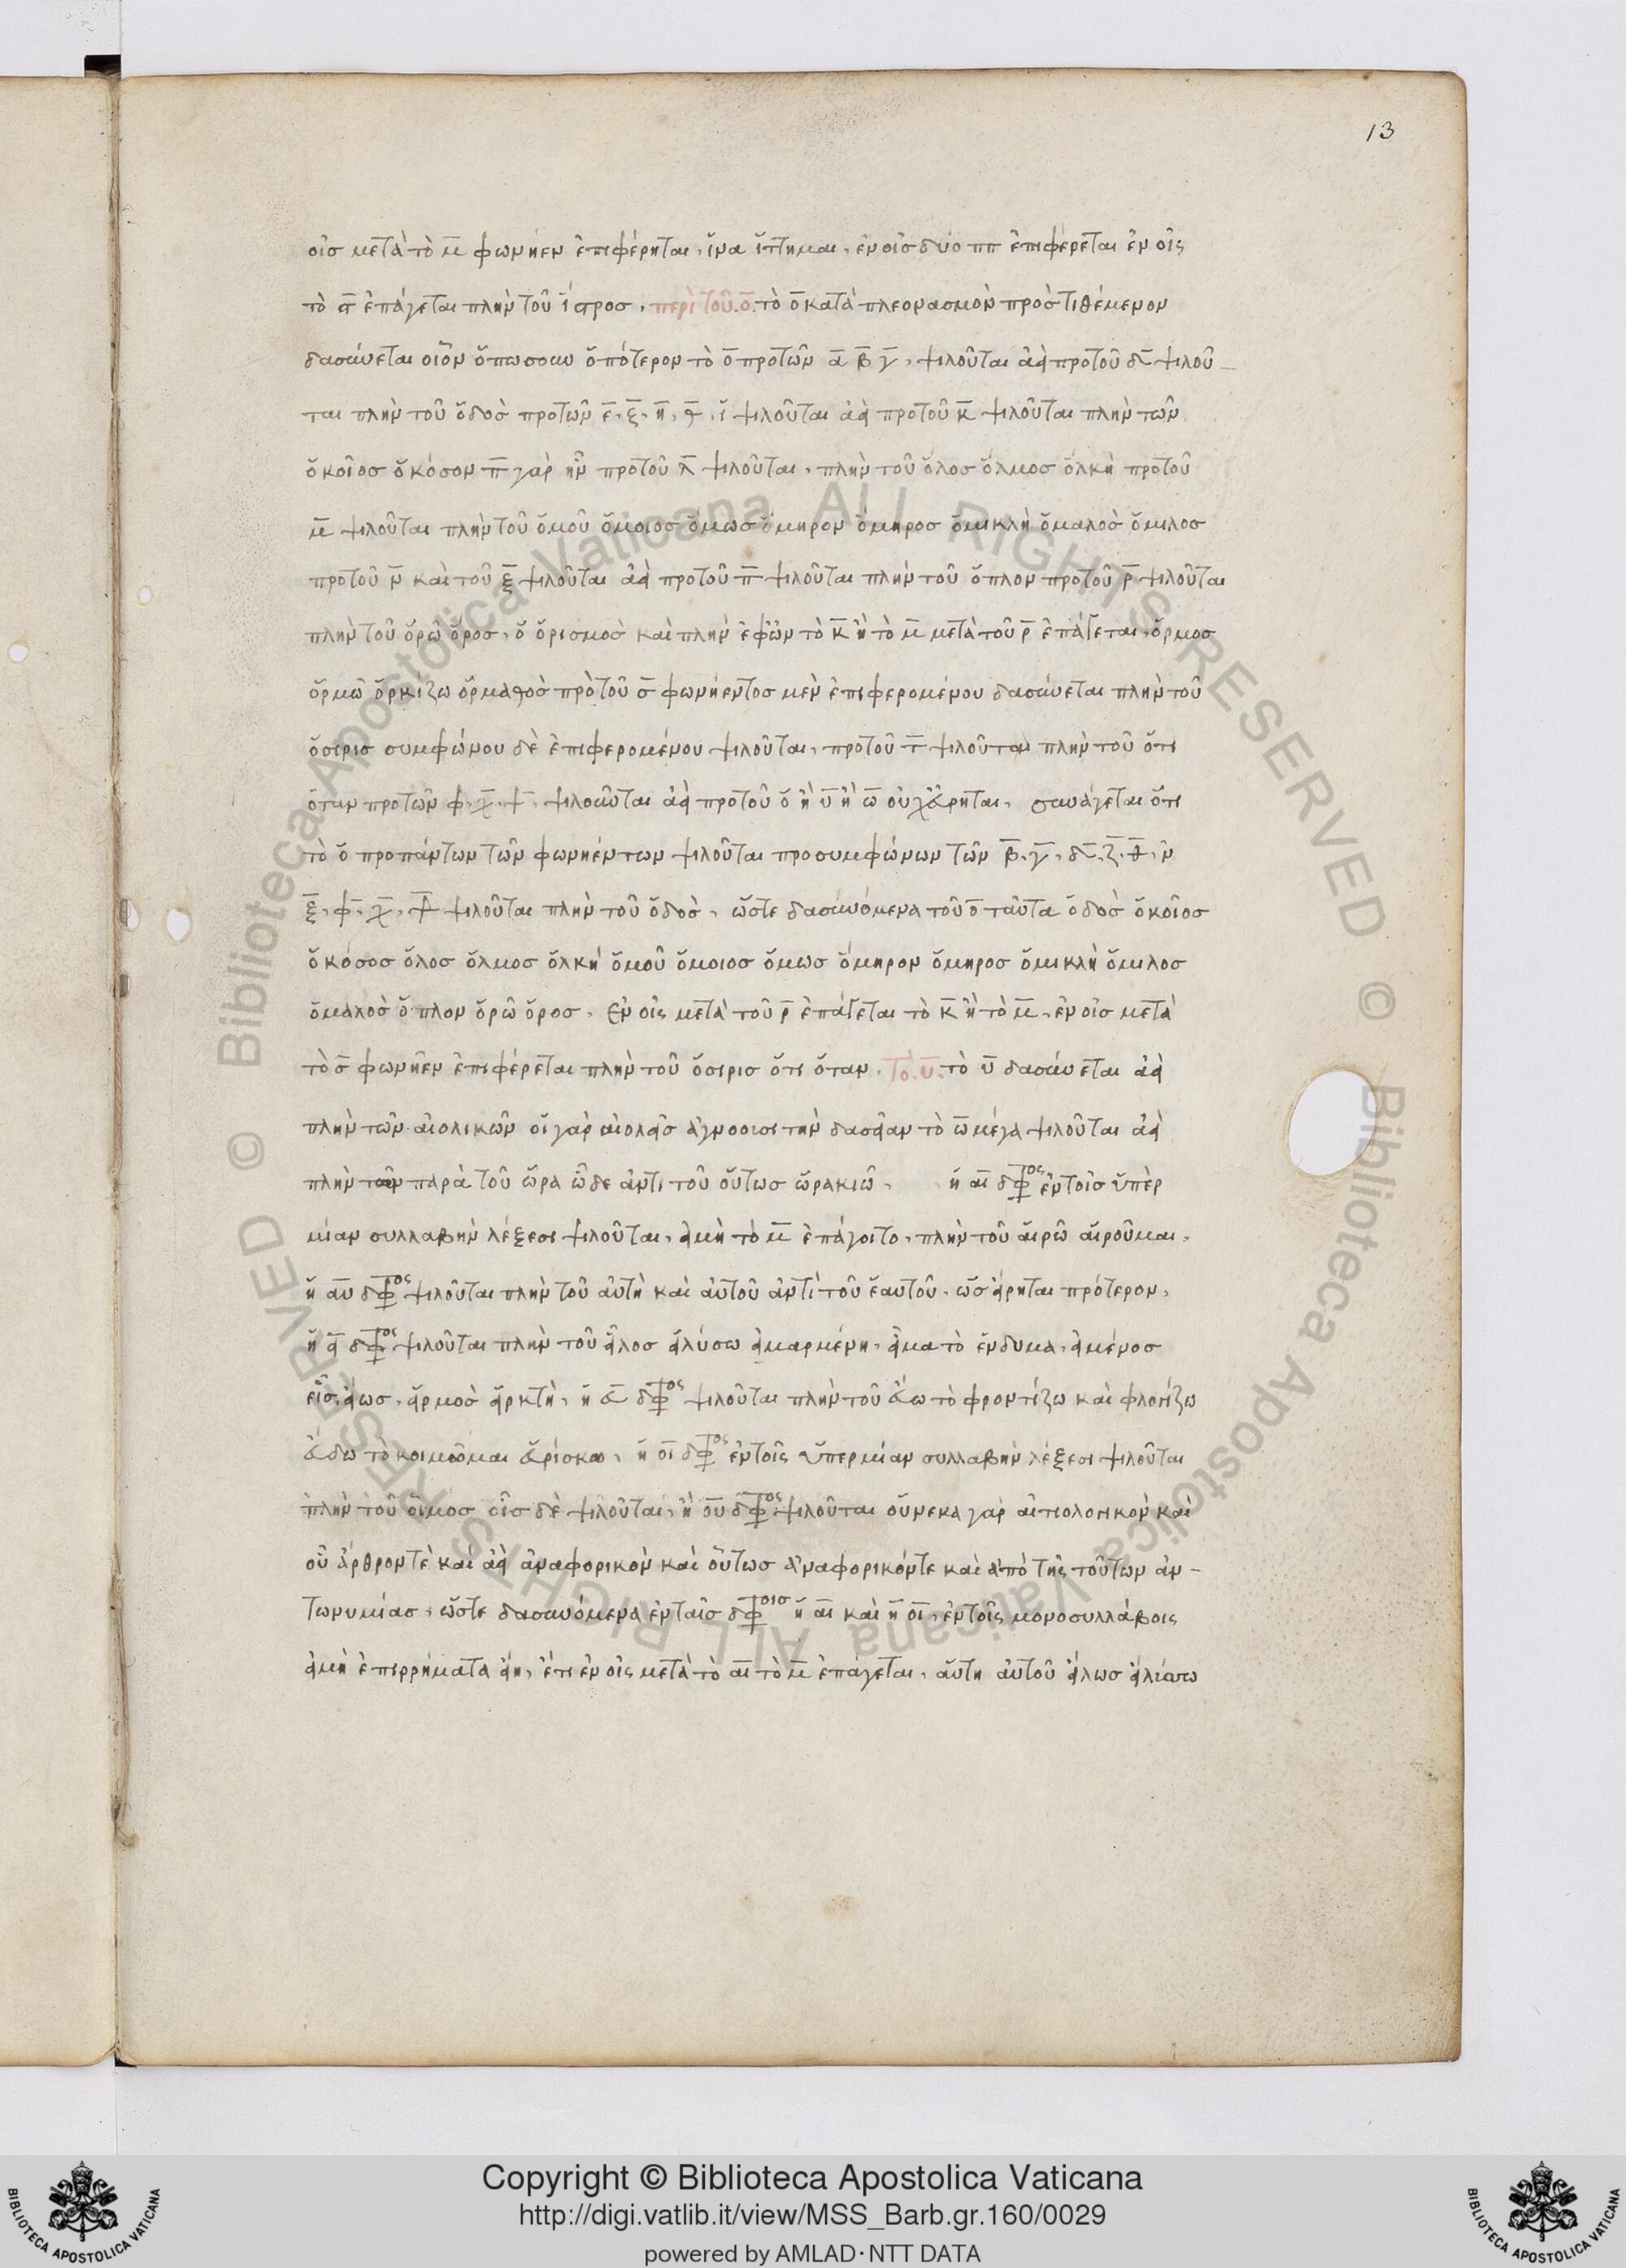 13
οἷσ μετὰ τὸ μ̅ φωνῆεν ἐπιφέρηται, ἵνα ἵπταμαι, ἐν οἷσ δύο ππ ἐπιφέρεται ἐν οἷς
τὸ στ̅ ἐπάγεται πλὴν τοῦ ἴστροσ, περὶ τοῦ. ο̅. τὸ ο̅ κατὰ πλεονασμὸν προστιθέμενον
δασύνεται οἷον ὅπωσουν ὁπότερον τὸ ο̅ προτῶν α̅ β̅ γ̅, ψιλοῦται ἀεὶ προτοῦ δ̅ ψιλοῦ
ται πλὴν τοῦ ὁδὸσ προτῶν ε̅, ξ̅, η̅, θ̅, ϊ ψιλοῦται ἀεὶ προτοῦ κ̅ ψιλοῦται πλὴν τῶν
ὁκοῖοσ ὁκόσον π̅ γὰρ ἦν προτοῦ λ̅ ψιλοῦται, πλὴν τοῦ ὅλοσ ὅλμοσ ὁλκὴ προτοῦ
μ̅ ψιλοῦται πλὴν τοῦ ὁμοῦ ὅμοιοσ ὅμωσ ὅμηρον ὅμηροσ ὁμικλὴ ὁμαλὸσ ὅμιλοσ
προτοῦ ν̅ καὶ τοῦ ξ̅ ψιλοῦται ἀεὶ προτοῦ π̅ ψιλοῦται πλὴν τοῦ ὅπλον προτοῦ ρ̅ ψιλοῦται
πλὴν τοῦ ὁρῶ ὅροσ, ὁ ὁρισμοσ καὶ πλὴν ἐφῶν τὸ κ̅ ἢ τὸ μ̅ μετὰ τοῦ ρ̅ ἐπάγεται, ὅρμοσ
ὁρμῶ ὁρκίζω ὁρμαθὸσ πρὸ τοῦ σ̅ φωνήεντοσ μὲν ἐπιφερομένου δασύνεται πλὴν τοῦ
ὄσιρισ συμφώνου δὲ ἐπιφερομένου ψιλοῦται, προτοῦ τ̅ ψιλοῦται πλὴν τοῦ ὅτι
ὅταν προτῶν φ̅. χ̅. ψ̅, ψιλοῦται ἀεὶ προτοῦ ο̅ ἢ υ̅ ἢ ω̅ οὐχ εὕρηται, συνάγεται ὅτι
τὸ ο̅ προπάντων τῶν φωνηέντων ψιλοῦται προσυμφώνων τῶν β̅, γ̅, δ̅, ζ̅, θ̅, ν̅
ξ̅, φ̅, χ̅, ψ̅ ψιλοῦται πλὴν τοῦ ὁδὸσ, ὥστε δασυνόμενα τοῦ ο̅ ταῦτα ὁδὸσ ὁκοῖοσ
ὁκόσοσ ὅλοσ ὅλμοσ ὁλκὴ ὁμοῦ ὅμοιοσ ὅμωσ ὅμηρον ὅμηροσ ὁμικλὴ ὅμιλοσ
ὁμαλὸσ ὅπλον ὁρῶ ὅροσ, ἐν οἷς μετὰ τοῦ ρ̅ ἐπάγεται τὸ κ̅ ἢ τὸ μ̅, ἐν οἷσ μετὰ
τὸ σ̅ φωνῆεν ἐπιφέρεται πλὴν τοῦ ὄσιρισ ὅτι ὅταν. τὸ. υ̅. τὸ υ̅ δασύνεται ἀεὶ
πλὴν τῶν αἰολικῶν οἱ γὰρ αἰολεῖσ ἀγνοοῦσι τὴν δασεῖαν τὸ ω̅ μέγα ψιλοῦται ἀεὶ
πλὴν τῶν παρὰ τοῦ ὥρα ὧδε ἀντὶ τοῦ οὕτωσ ὡρακιῶ, ἡ αι̅ δφ̅ος ἐν τοῖσ ὑπὲρ
μίαν συλλαβὴν λέξεσι ψιλοῦται, εἰ μὴ τὸ μ̅ ἐπάγοιτο, πλὴν τοῦ αἱρῶ αἱροῦμαι,
ἡ αυ̅ δφ̅ος ψιλοῦται πλὴν τοῦ αὑτὴ καὶ αὑτοῦ ἀντὶ τοῦ ἑαυτοῦ, ὡσ εἴρηται πρότερον,
ἡ ει̅ δφ̅ος ψιλοῦται πλὴν τοῦ εἷλοσ εἱλύσω εἱμαρμένη, εἷμα τὸ ἔνδυμα, εἱμένοσ
εἷσ, εἵωσ, εἱρμοσ εἱρκτὴ, ἡ ευ̅ δφ̅ος ψιλοῦται πλὴν τοῦ εὕω τὸ φροντίζω καὶ φλογίζω
εὕδω τὸ κοιμῶμαι εὑρίσκω, ἡ οι̅ δφ̅ος ἐν τοῖς ὑπερμίαν συλλαβὴν λέξεσι ψιλοῦται
πλὴν τοῦ οἷμοσ οἷσ δὲ ψιλοῦται, ἡ ου̅ δφ̅ος ψιλοῦται οὕνεκα γὰρ αἰτιολογικὸν καὶ
οὗ ἄρθροντὲ καὶ ἀεὶ ἀναφορικὸν καὶ οὕτωσ ἀναφορικόντε καὶ ἀπὸ τῆς τούτων ἀν
τωνυμίασ, ὥστε δασυνόμενα ἐν ταῖσ δφ̅οισ ἡ αι̅ καὶ ἡ οι̅, ἐν τοῖς μονοσυλλάβοις
εἰ μὴ ἐπιρρήματα εἴη, ἔτι ἐν οἷς μετὰ τὸ αι̅ τὸ μ̅ ἐπάγεται, αὕτη αὑτοῦ εἵλωσ εἱλίσσω
Copyright © Biblioteca Apostolica Vaticana
http://digi.vatlib.it/view/MSS_Barb.gr.160/0029
powered by AMLAD·NTT DATA
BIBLIOTECA APOSTOLICA VATICANA
BIBLIOTECA APOSTOLICA VATICANA
© Biblioteca Apostolica Vaticana ALL RIGHTS RESERVED
© Biblioteca Apostolica Vaticana ALL RIGHTS RESERVED